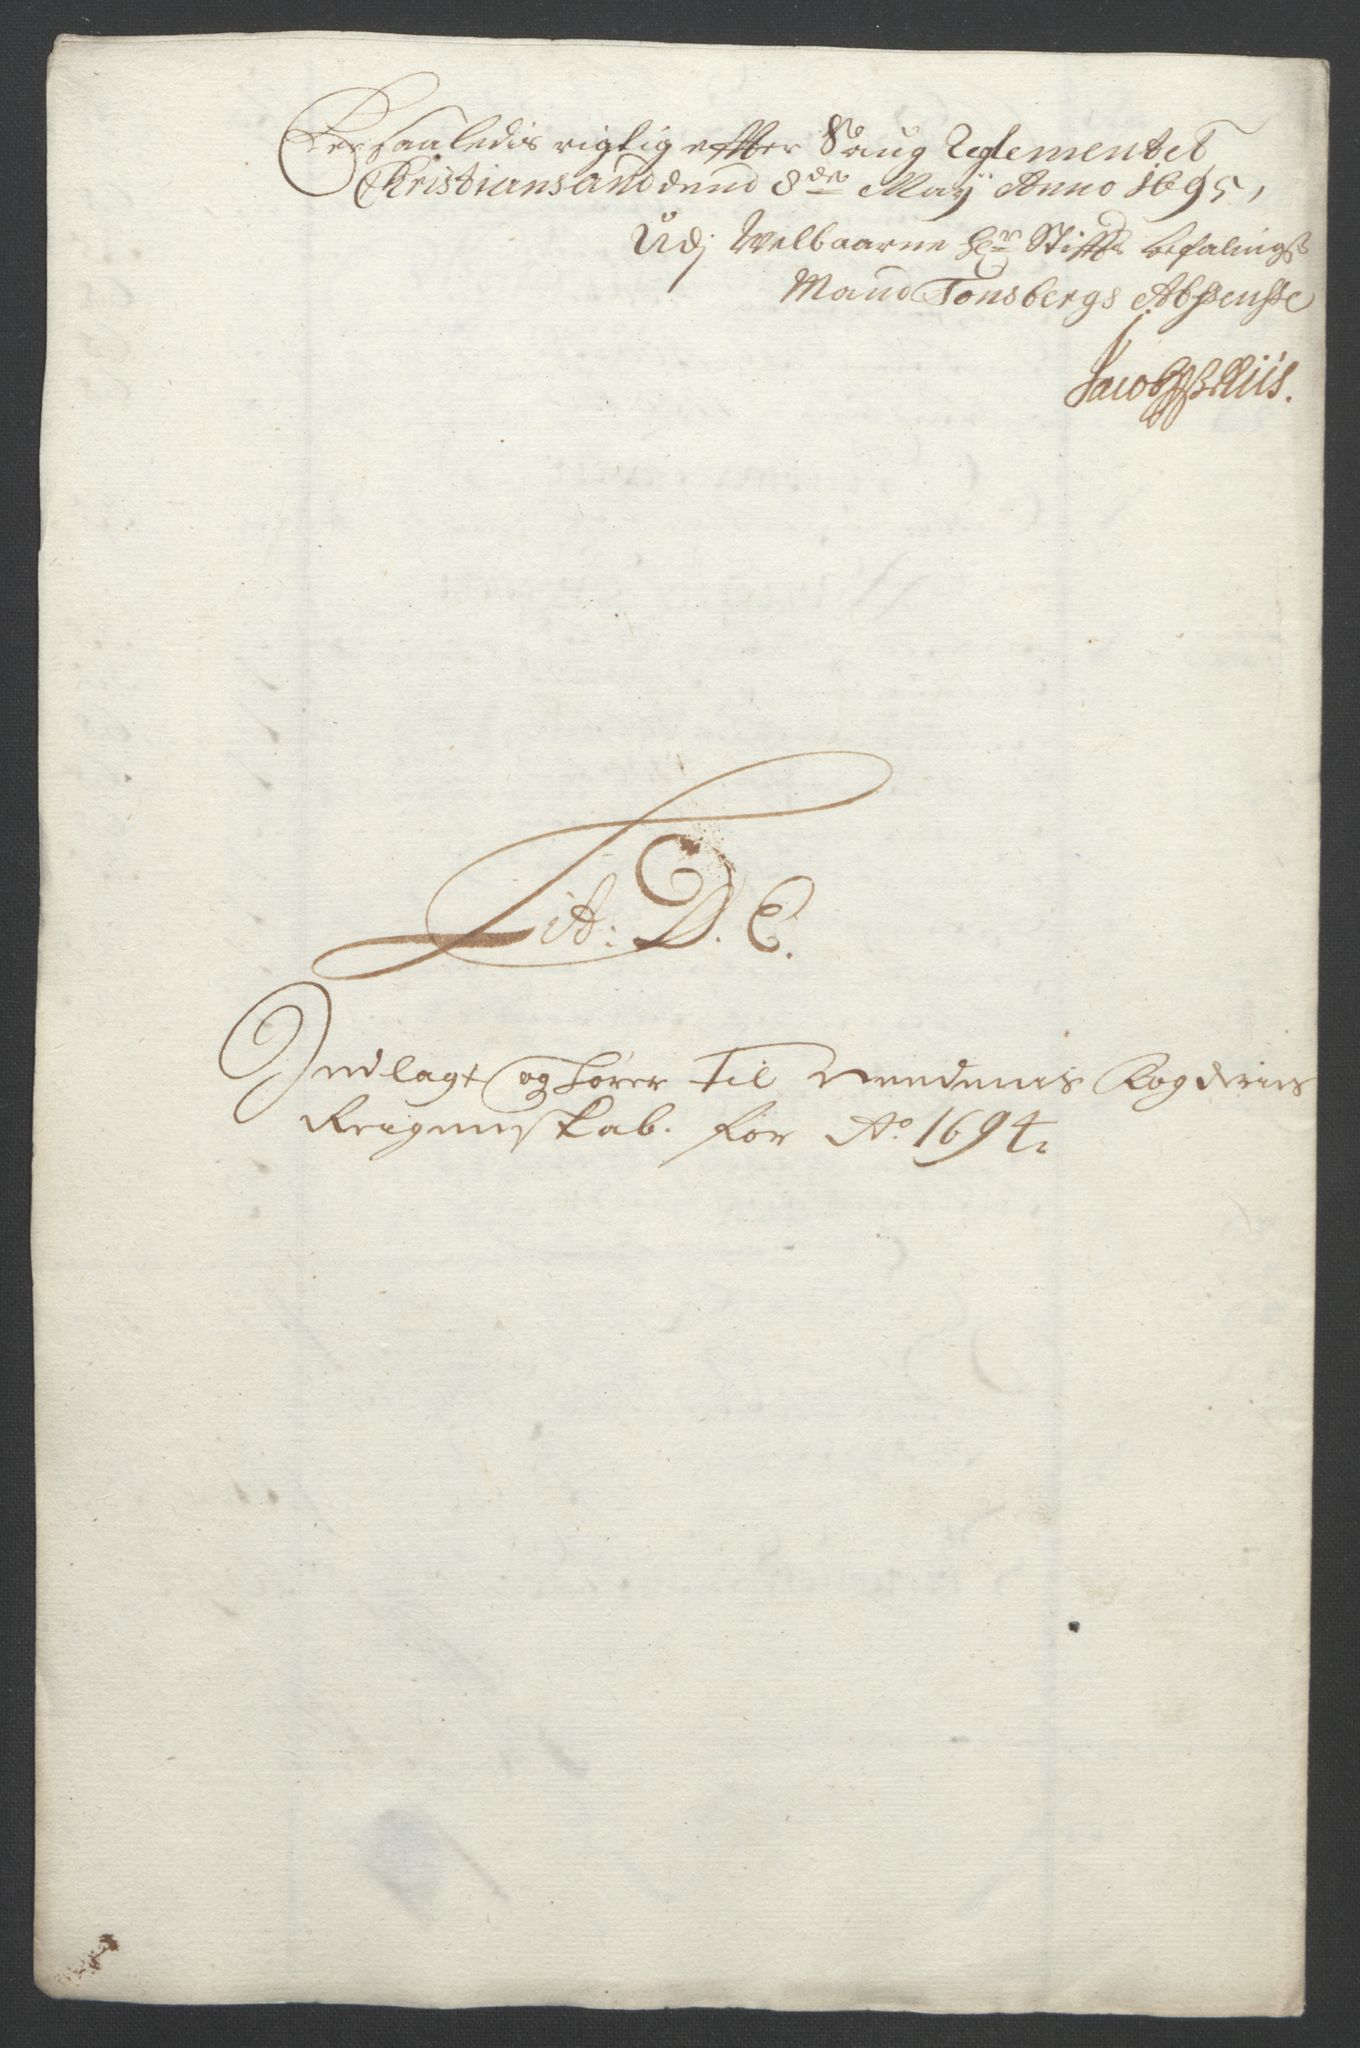 Er saaledis rigtig effter Saug Reglementet
Christiansand dend 8de Maÿ Anno 1695,
Udj Welbaarne Hr Stiffts befalings
Mand Tonsbergs Abssensse
Jacob Riis.
Lit: D. E.
Indlagt og hører Til Needenis Fogderies
Reigenskab. for Ao 1694.